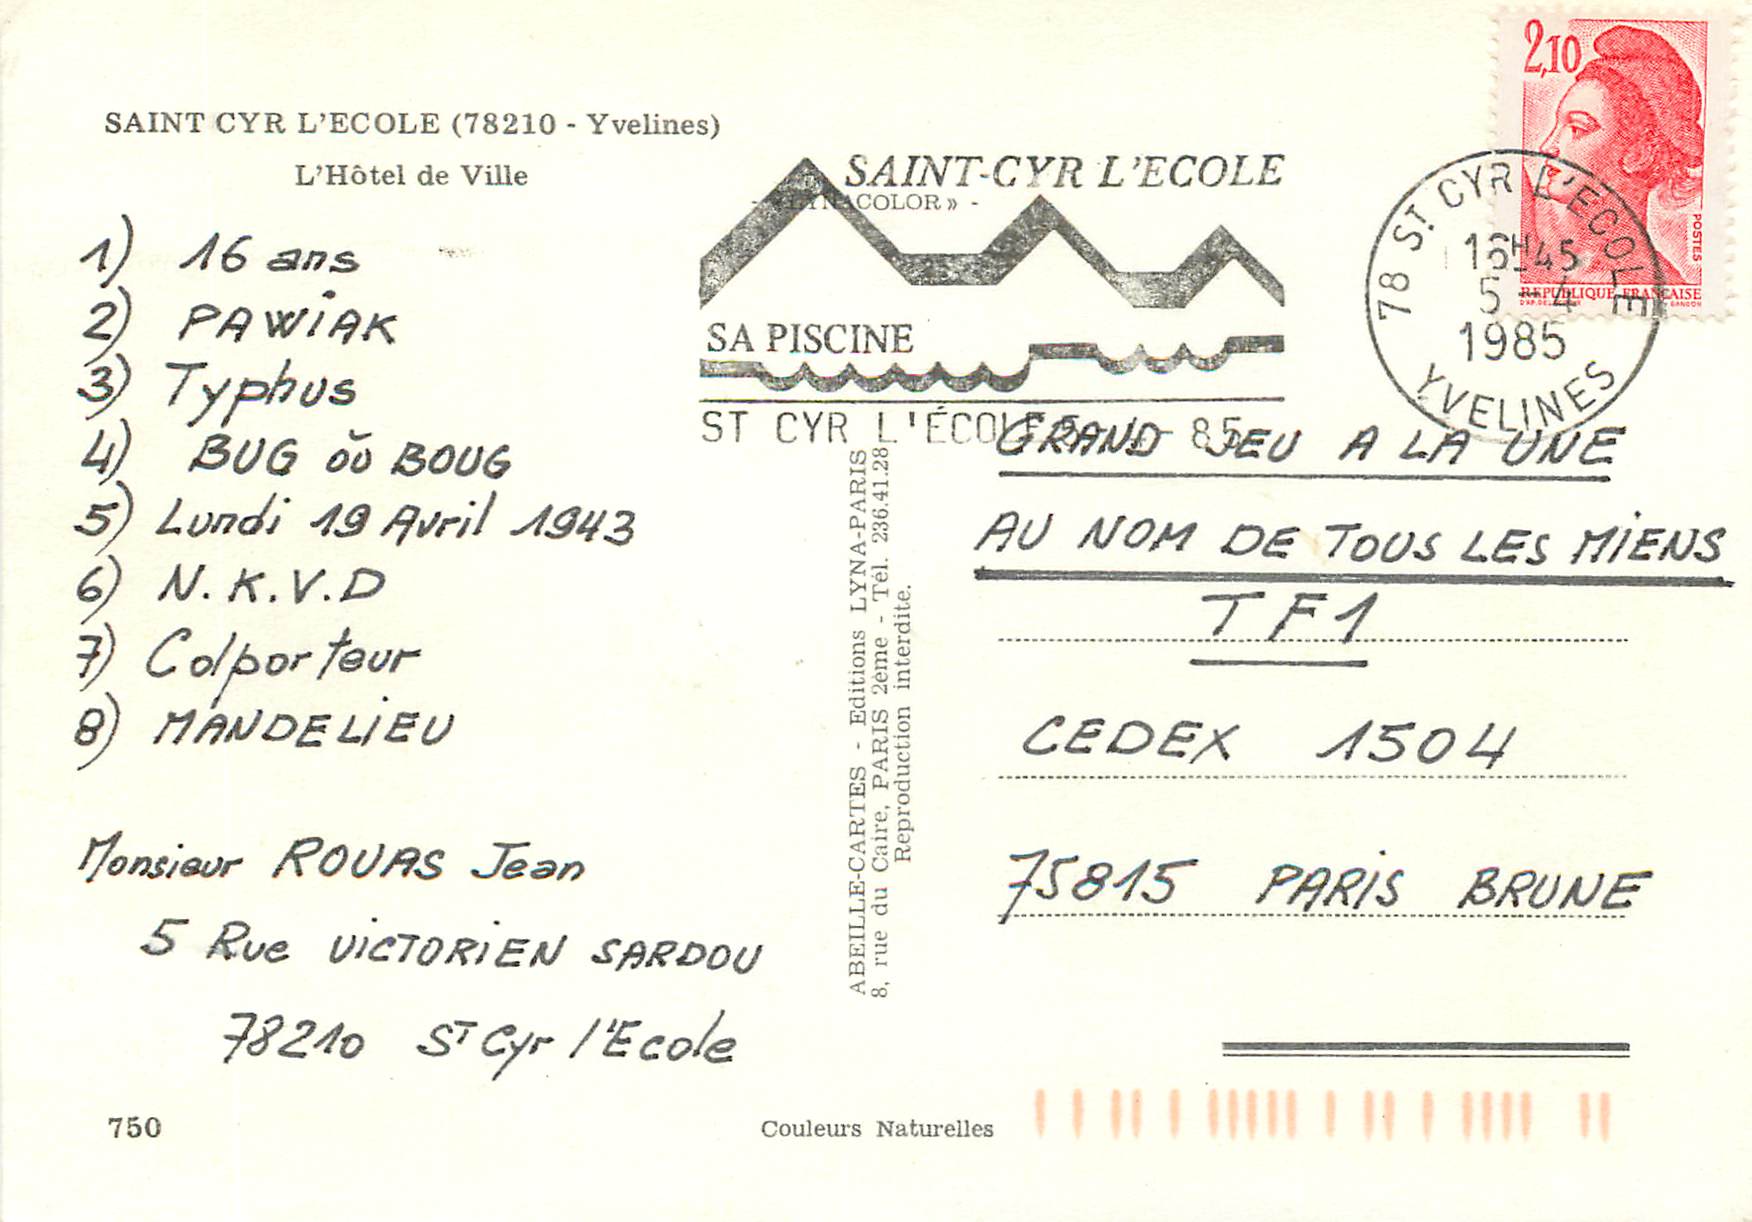 SAINT CYR L'ECOLE (78210 - Yvelines)
L'Hôtel de Ville
- « LYNACOLOR » -
1) 16 ans
2) PAWIAK
3) Typhus
4) BUG oŭ BOUG
5) Lundi 19 Avril 1943
6) N.K.V.D
7) Colporteur
8) MANDELIEU
Monsieur ROUAS Jean
5 Rue VICTORIEN SARDOU
78210 ST Cyr l'Ecole
750
Couleurs Naturelles
ABEILLE-CARTES - Editions LYNA-PARIS
8, rue du Caire, PARIS 2ème - Tél. 236.41.28
Reproduction interdite.
SAINT-CYR L'ECOLE
SA PISCINE
ST CYR L'ÉCOLE 5 - 4 - 85
2,10
POSTES
REPUBLIQUE FRANÇAISE
78 ST CYR L'ECOLE
16H45
5 - 4
1985
YVELINES
GRAND JEU A LA UNE
AU NOM DE TOUS LES MIENS
TF1
CEDEX 1504
75815 PARIS BRUNE